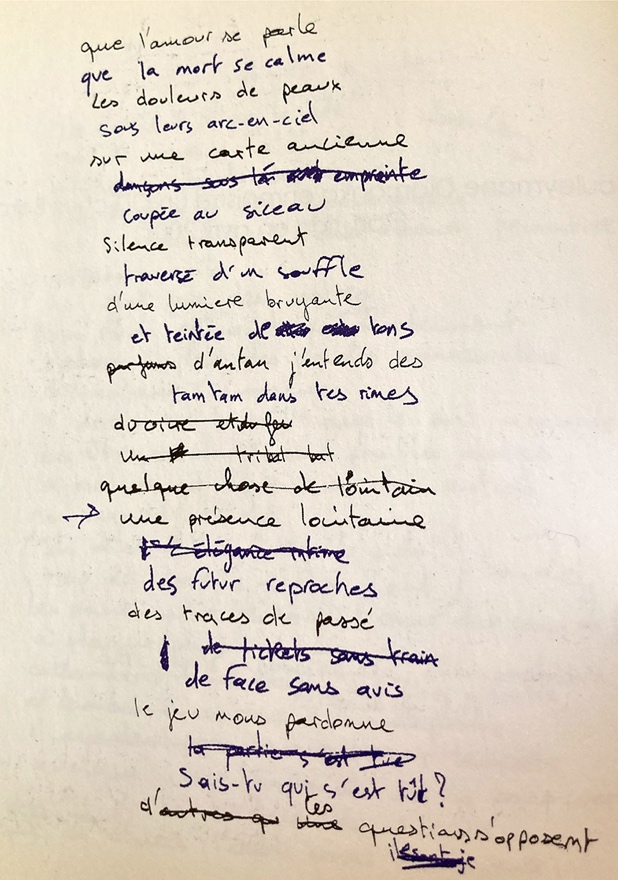 que l'amour se parle
que la mort se calme
Les douleurs de peaux
sous leurs arc-en-ciel
sur une carte ancienne
dansons sous la empreinte
coupée au siceau
Silence transparent
traversé d'un souffle
d'une lumiere bruyante
et teintée de tons
parfums d'antan j'entends des
tam tam dans tes rimes
du cuivre et du feu
un tribal but
quelque chose de lointain
une présence lointaine
élégance intime
des futur reproches
des traces de passé
de tickets sans train
de face sans avis
le jeu nous pardonne
la partie s'est tue
Sais-tu qui s'est tût ?
les
d'autres questions s'opposent